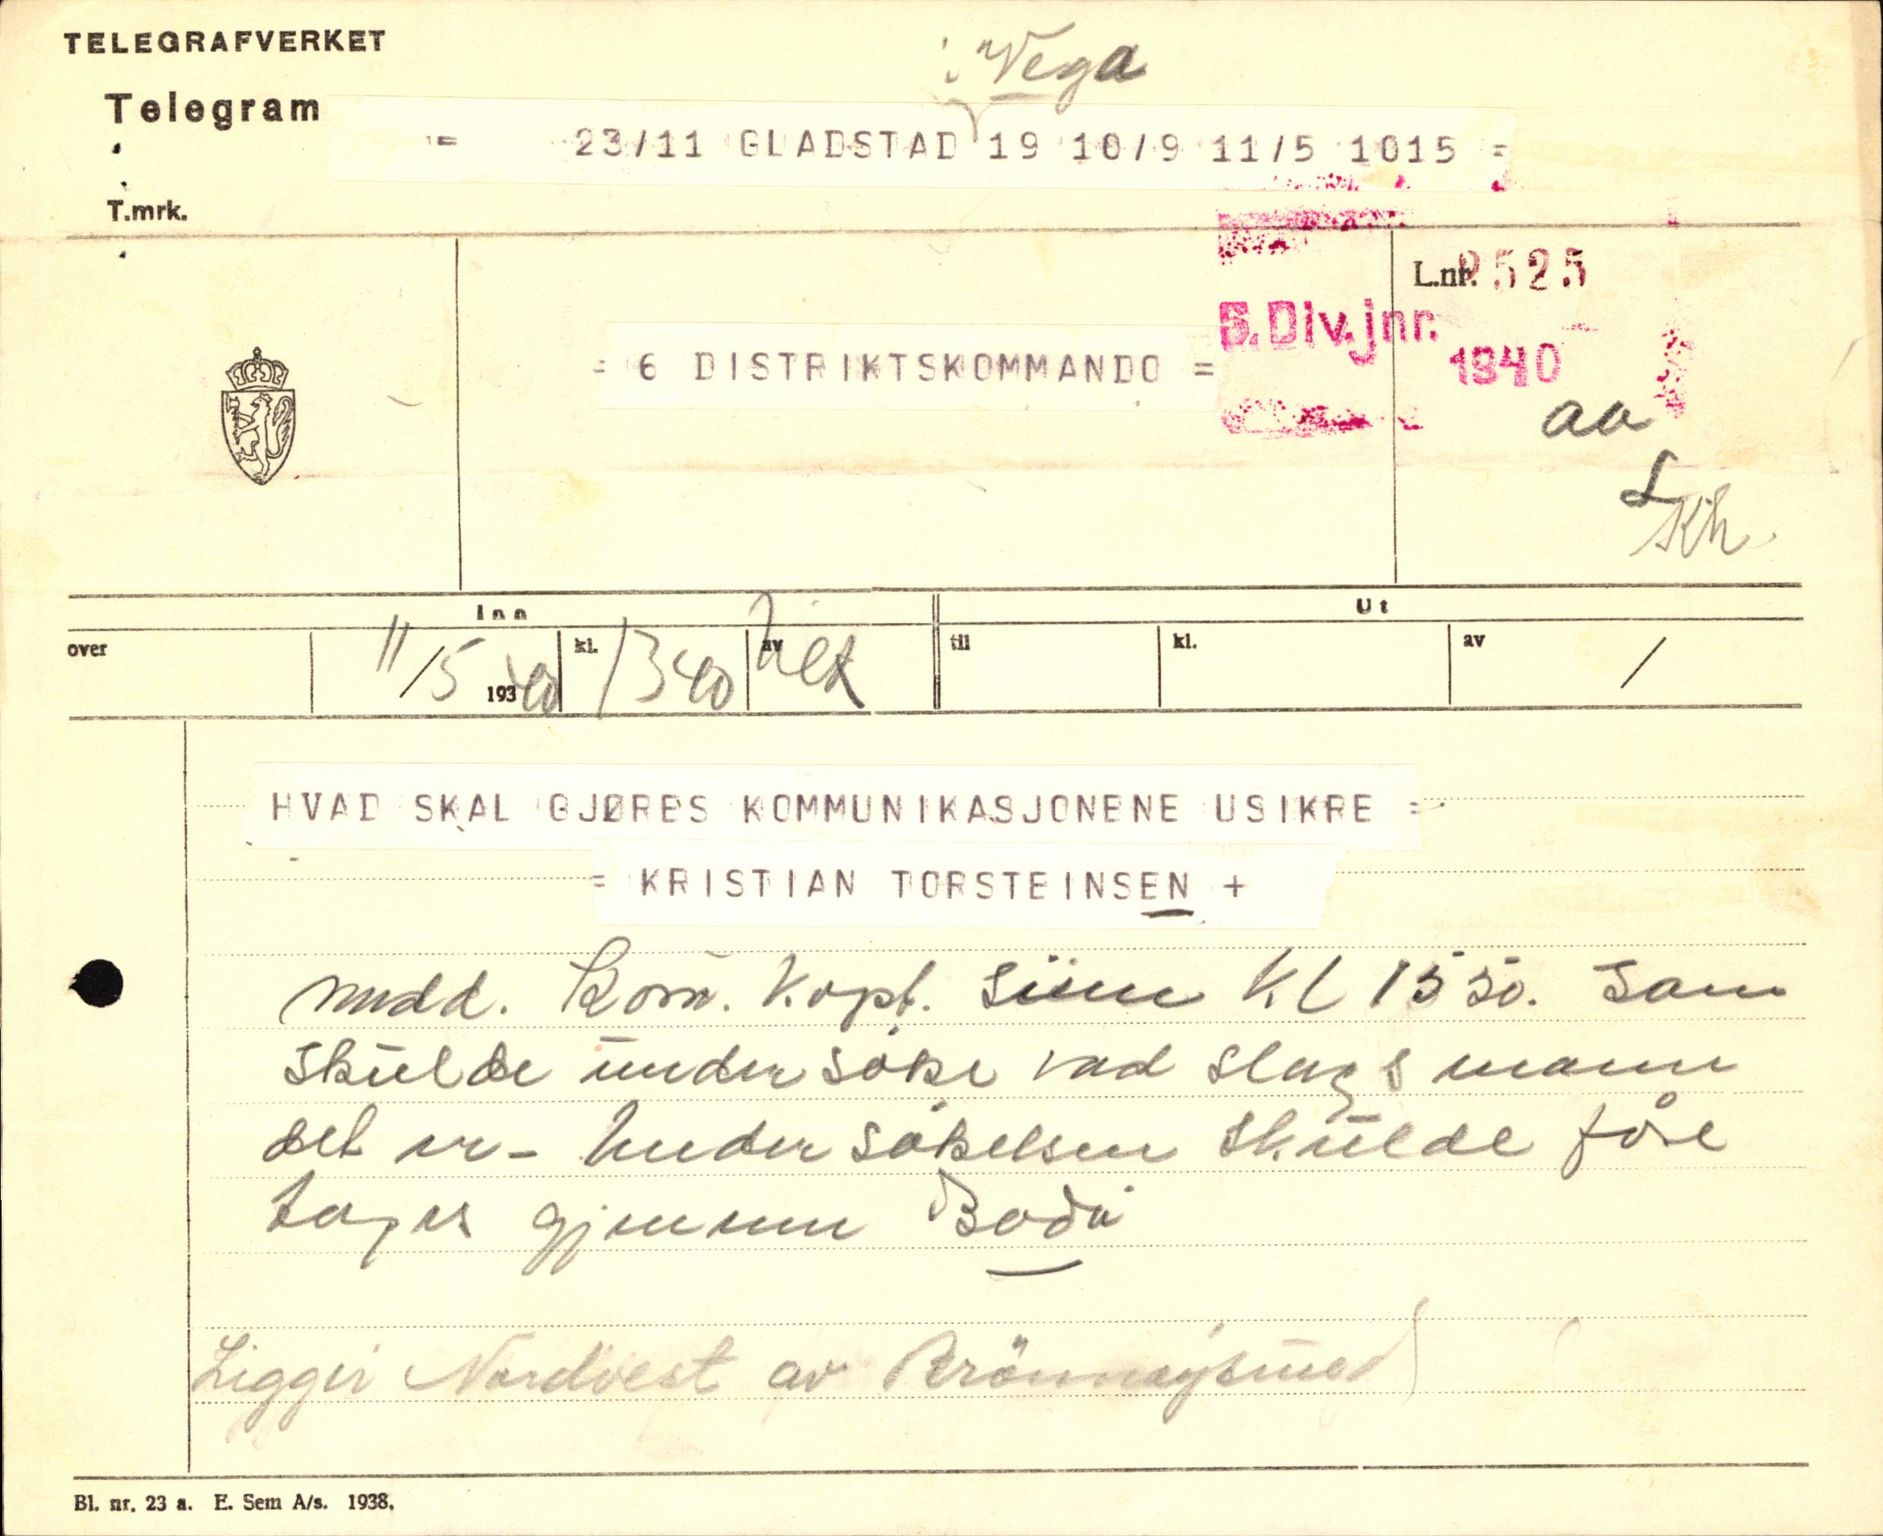 TELEGRAFVERKET
i "Vega
Telegram
= 23/11 GLADSTAD 19 10/9 11/5 1015 =
T.mrk.
L.nr. 2525
6. Div. jnr.
1940
= 6 DISTRIKTSKOMMANDO =
av
L
Kh.
Inn Ut
over 11/5 193 40 kl. 1340 av til kl. av /
HVAD SKAL GJØRES KOMMUNIKASJONENE USIKRE =
= KRISTIAN TORSTEINSEN +
medd. Kom. Kapt. Siim Kl 1550. Som
skulde undersøke vad slags mann
det er - Undersøkelsen skulde före
tages gjennem Bodö
Ligger Nordvest av Brönnöysund
Bl. nr. 23 a. E. Sem A/s. 1938.